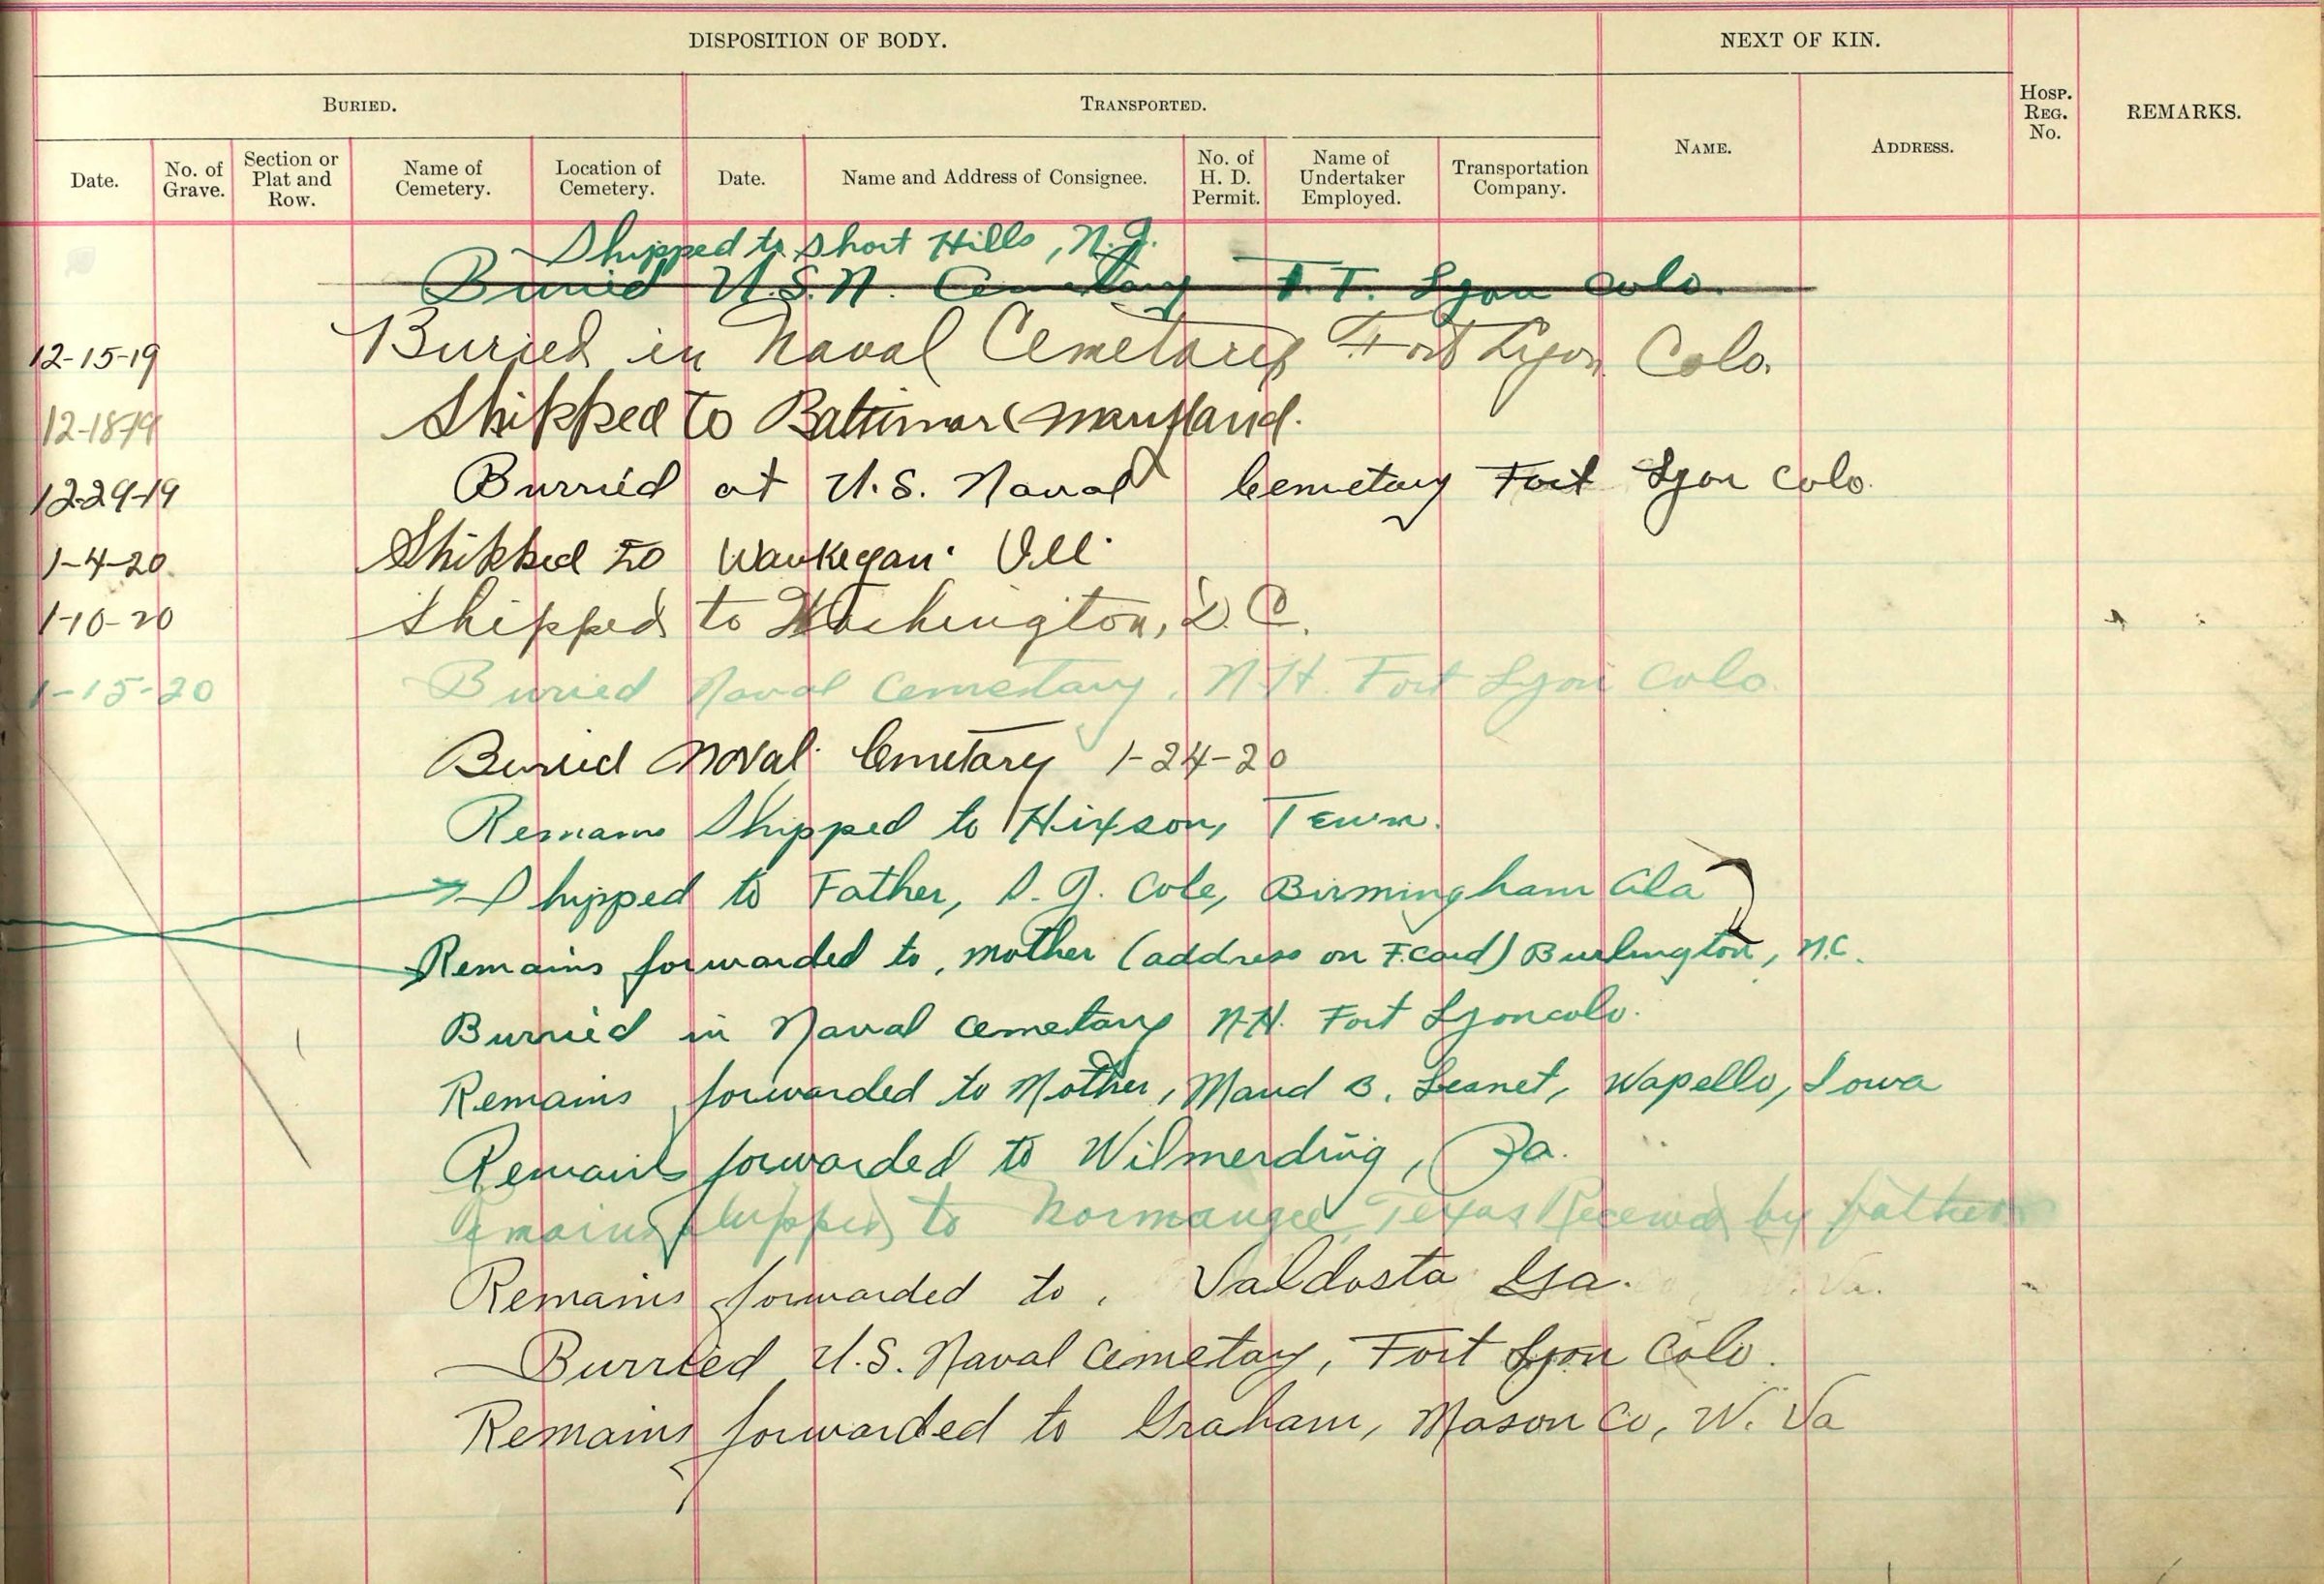 DISPOSITION OF BODY. NEXT OF KIN.
BURIED. TRANSPORTED. HOSP. REG. No. REMARKS.
Date. No. of Grave. Section or Plat and Row. Name of Cemetery. Location of Cemetery. Date. Name and Address of Consignee. No. of H. D. Permit. Name of Undertaker Employed. Transportation Company. NAME. ADDRESS.
Shipped to Short Hills, N.J.
Buried U.S.N. Cemetary FT. Lyon Colo.
12-15-19 Buried in Naval Cemetary Fort Lyon Colo.
12-18-19 Shipped to Baltimore Maryland.
12-29-19 Burried at U.S. Naval Cemetary Fort Lyon Colo.
1-4-20. Shipped to Waukegan Ill.
1-10-20 Shipped to Washington, D.C.
1-15-20 Buried Naval Cemetary, N.H. Fort Lyon Colo.
Buried Naval Cemetary 1-24-20
Remains Shipped to Hixson, Tenn.
Shipped to Father, S. J. Cole, Birmingham Ala
Remains forwarded to, mother (address on F.card) Burlington, N.C.
Burried in Naval Cemetary N.H. Fort Lyon Colo.
Remains forwarded to Mother, Maud B. Wapello, Iowa
Remains forwarded to Wilmerding, Pa.
Remains shipped to Normangee, Texas Received by father
Remains forwarded to, Valdosta Ga.
Burried U.S. Naval Cemetary, Fort Lyon Colo.
Remains forwarded to Graham, Mason Co, W. Va